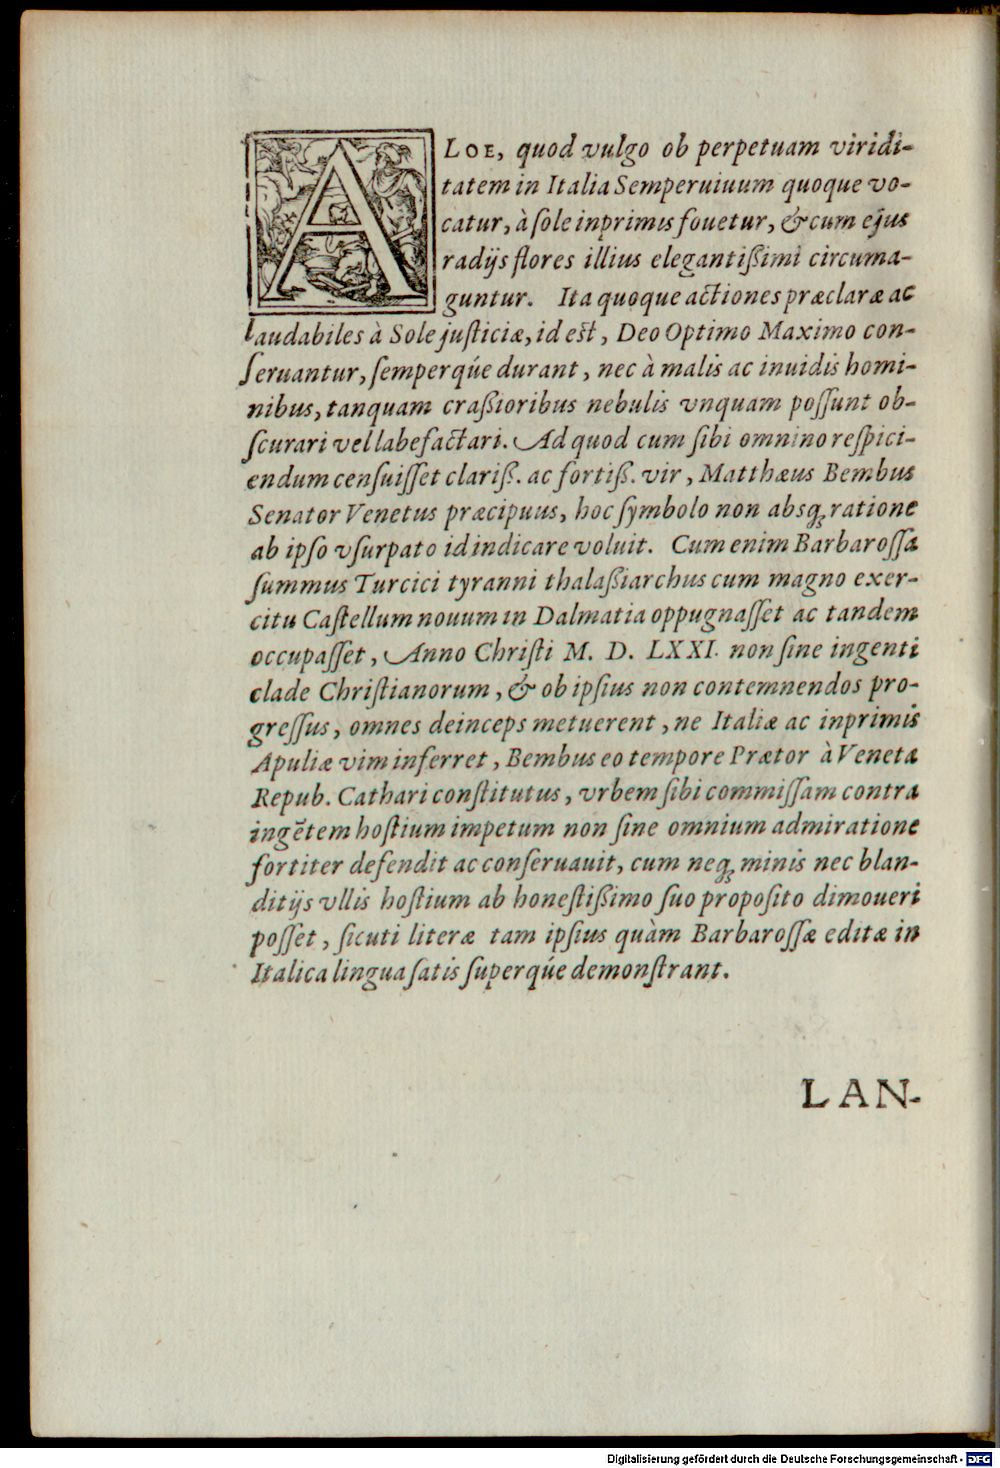 ALOE, quod vulgo ob perpetuam viridi-
tatem in Italia Semperuiuum quoque vo-
catur, à ſole inprimis fouetur, & cum ejus
radijs flores illius elegantißimi circuma-
guntur. Ita quoque actiones præclaræ ac
laudabiles à Sole juſticiæ, id eſt, Deo Optimo Maximo con-
ſeruantur, ſemperqúe durant, nec à malis ac inuidis homi-
nibus, tanquam craßioribus nebulis vnquam poſſunt ob-
ſcurari vel labefactari. Ad quod cum ſibi omnino reſpici-
endum cenſuiſſet clariß. ac fortiß. vir, Matthæus Bembus
Senator Venetus præcipuus, hoc ſymbolo non absq; ratione
ab ipſo vſurpato id indicare voluit. Cum enim Barbaroſſa
ſummus Turcici tyranni thalaßiarchus cum magno exer-
citu Caſtellum nouum in Dalmatia oppugnaſſet ac tandem
occupaſſet, Anno Chriſti M. D. LXXI. non ſine ingenti
clade Chriſtianorum, & ob ipſius non contemnendos pro-
greſſus, omnes deinceps metuerent, ne Italiæ ac inprimis
Apuliæ vim inferret, Bembus eo tempore Prætor à Veneta
Repub. Cathari conſtitutus, vrbem ſibi commiſſam contra
ingētem hoſtium impetum non ſine omnium admiratione
fortiter defendit ac conſeruauit, cum neq; minis nec blan-
ditijs vllis hoſtium ab honeſtißimo ſuo propoſito dimoueri
poſſet, ſicuti literæ tam ipſius quàm Barbaroſſæ editæ in
Italica lingua ſatis ſuperqúe demonſtrant.
LAN-
Digitalisierung gefördert durch die Deutsche Forschungsgemeinschaft - DFG